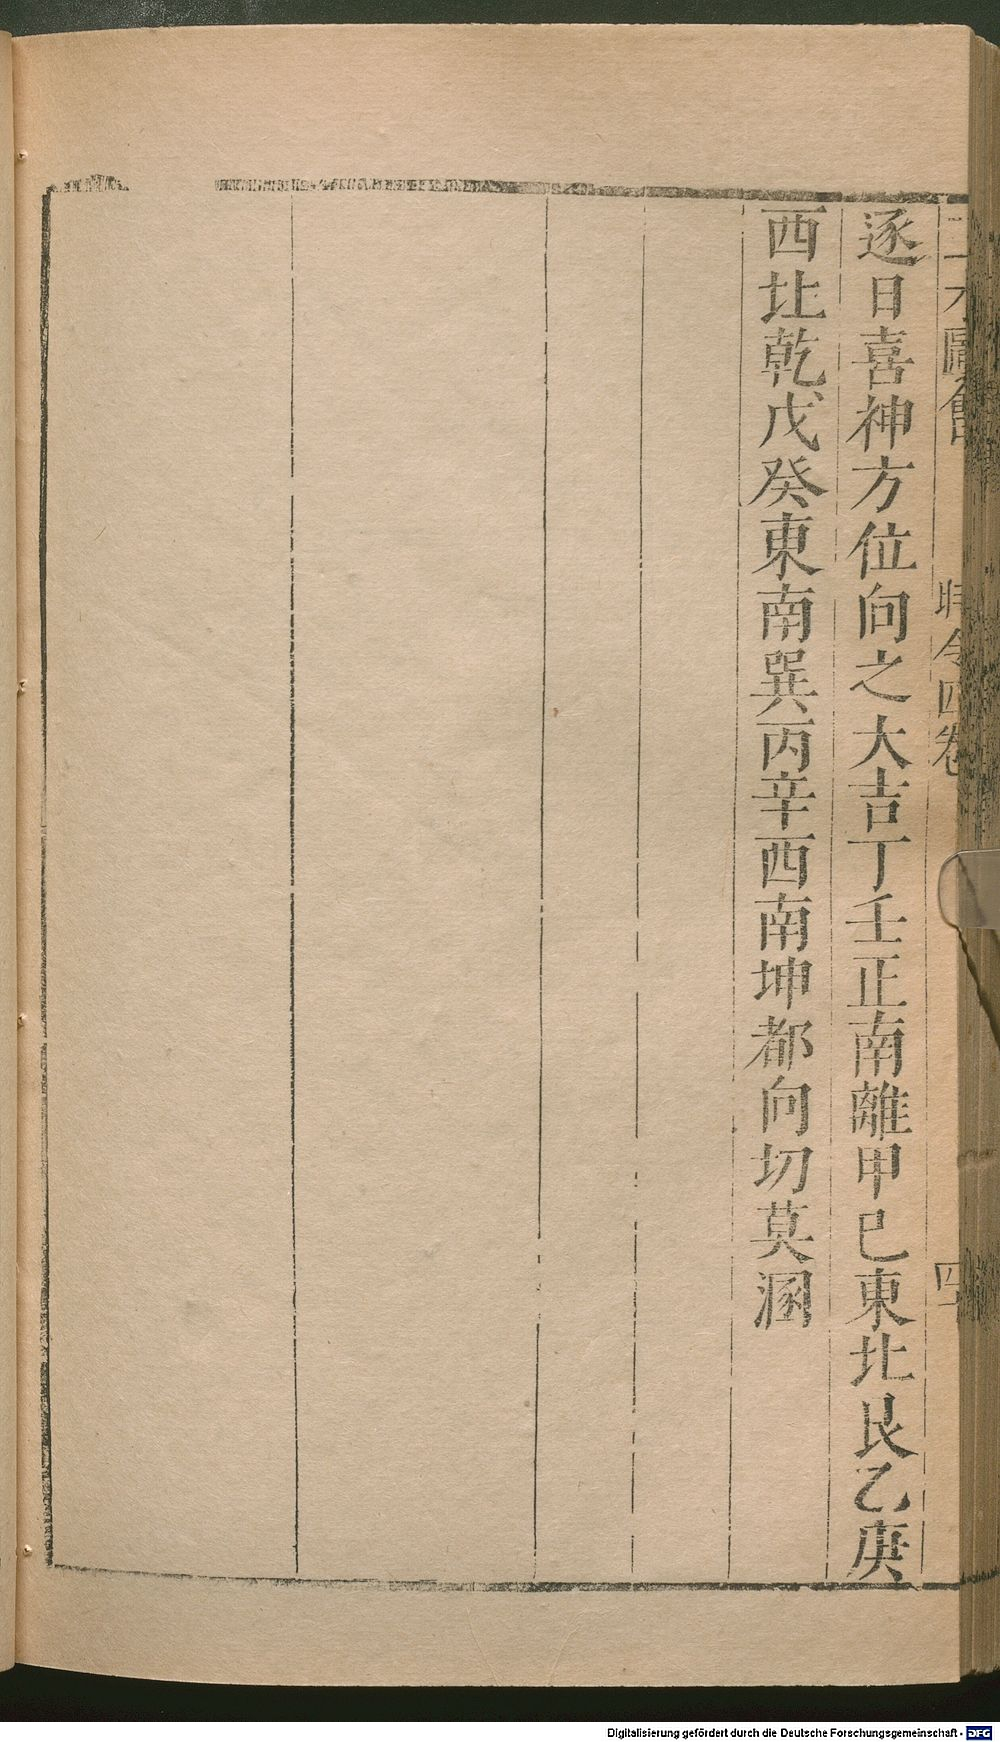 三才圖會 時令四卷 四
逐日喜神方位向之大吉丁壬正南離甲巳東北艮乙庚
西北乾戊癸東南巽丙辛西南坤都向切莫溷
Digitalisierung gefördert durch die Deutsche Forschungsgemeinschaft - DFG